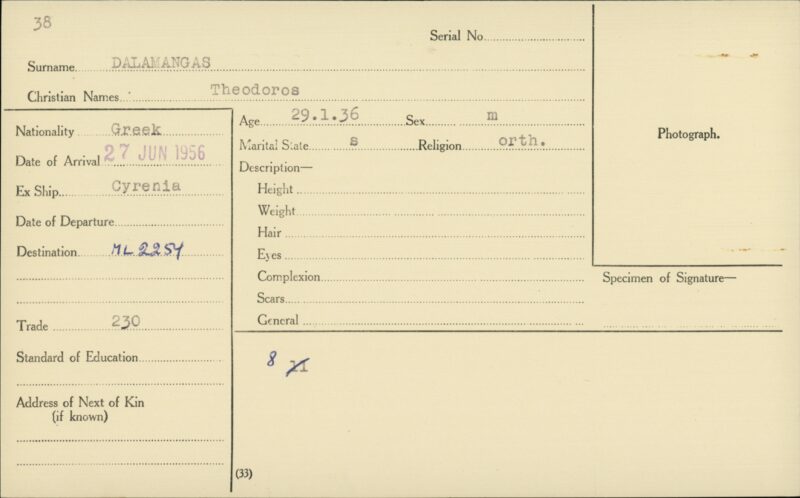 38
Serial No.
Surname DALAMANGAS
Christian Names Theodoros
Nationality Greek
Date of Arrival 27 JUN 1956
Ex Ship Cyrenia
Date of Departure
Destination ML 2254
Trade 230
Standard of Education
Address of Next of Kin
(if known)
Age 29.1.36 Sex m
Marital State s Religion orth.
Description—
Height
Weight
Hair
Eyes
Complexion
Scars
General
8
(33)
Photograph.
Specimen of Signature—